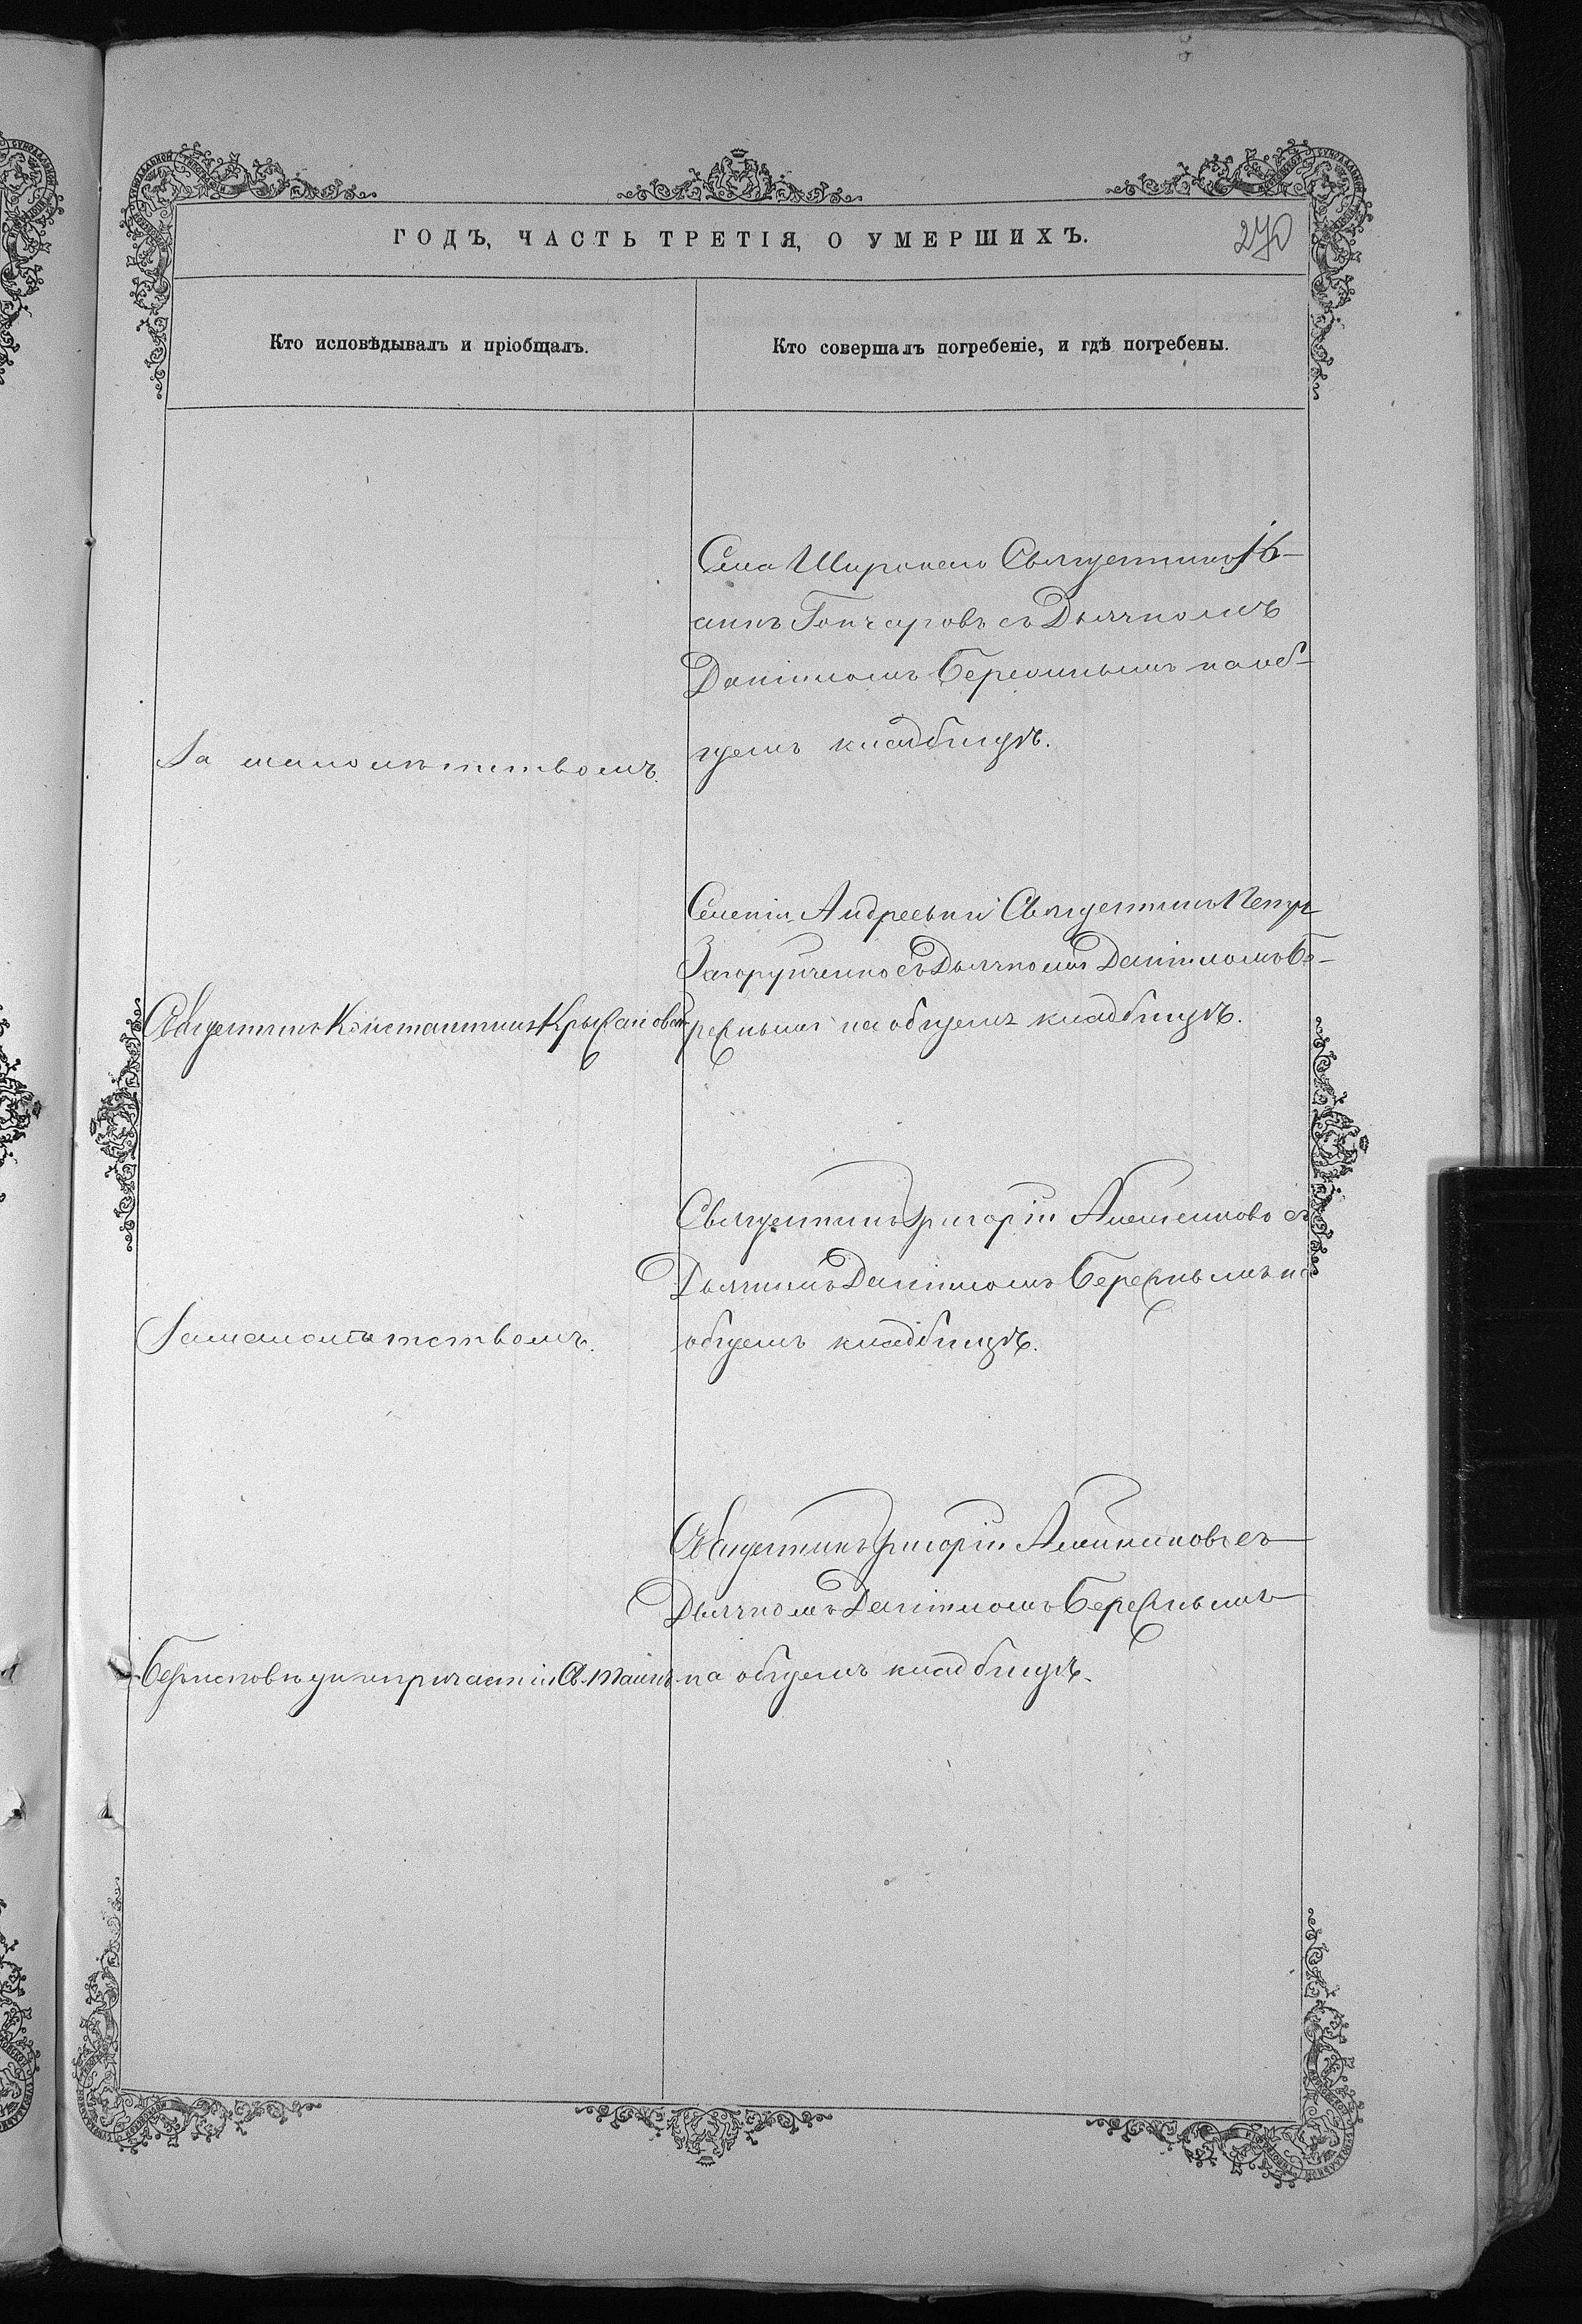 ГОДЪ, ЧАСТЬ ТРЕТІЯ, О УМЕРШИХЪ.
270
Кто исповѣдывалъ и пріобщалъ.
Кто совершалъ погребеніе, и гдѣ погребены.
За малолѣтствомъ.
Села Широкаго Священникъ Iо-
аннъ Гончаровъ съ Дьячкомъ
Даніиломъ Березнымъ на об-
щемъ кладбищѣ.
Священникъ Константинъ
Священникъ Петръ
Загоруйченко съ Дьячкомъ Даніиломъ Бе-
резнымъ на общемъ кладбищѣ.
За малолѣтствомъ.
Священникъ Григорій съ
Дьячкомъ Даніиломъ Березнымъ на
общемъ кладбищѣ.
Безъ исповѣди и причастія Св. Таинъ
Священникъ Григорій съ
Дьячкомъ Даніиломъ Березнымъ
на общемъ кладбищѣ.